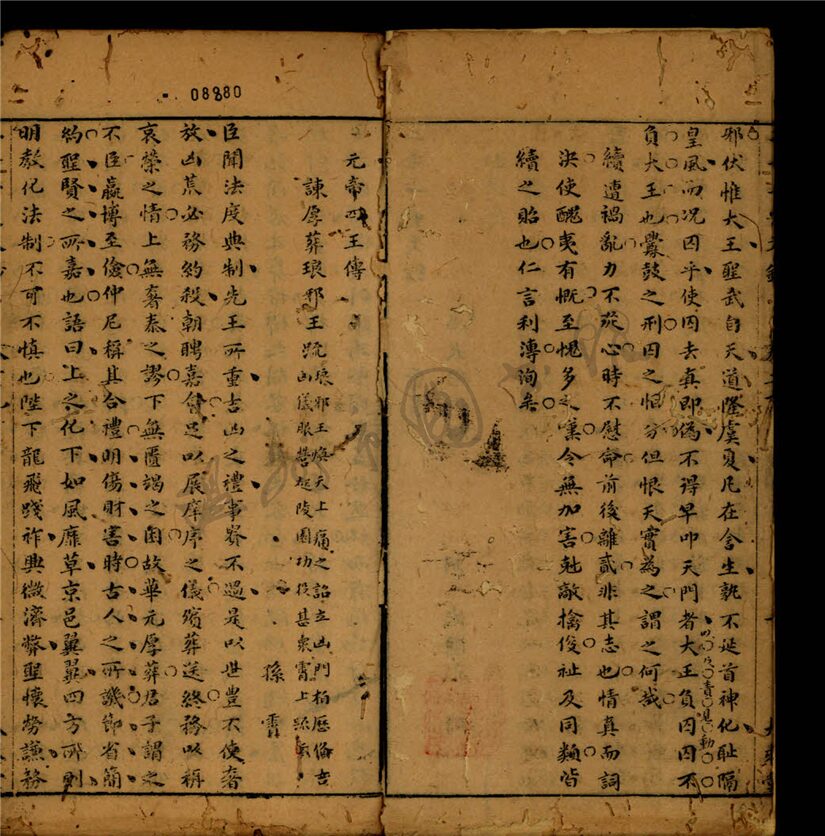 邪伏惟大王聖武自天道隆虞夏凡在含生孰不延首神化恥隔
皇風而況囚乎使囚去真即偽不得早叩天門者大王負囚囚不
負大王也釁鼓之刑囚之恒分但恨天實為之謂之何哉
續遭禍亂力不從心時不慰命前後離貳非其志也情真而詞
決使醜夷有慨至愧多之業令無加害尅敵擒俊祉及同類皆
續之貽也仁言利溥洵矣
08880
元帝四王傳
諫厚葬琅邪王疏
琅邪王煥夭上痛之詔立凶門栢歷俻吉
凶儀服營起陵園功役甚衆霄上疏云
孫霄
臣聞法度典制先王所重吉凶之禮事不過是以世豐不使奢
放凶荒必務約殺朝聘嘉會足以展庠序之儀殯葬送終務以稱
哀榮之情上無奢泰之謬下無匱竭之困故華元厚葬君子謂之
不臣嬴博至儉仲尼稱其合禮明傷財害時古人之所譏節省簡
約聖賢之所嘉也語曰上之化下如風靡草京邑翼翼四方所則
明教化法制不可不慎也陛下龍飛踐祚興微濟弊聖懷勞謙務